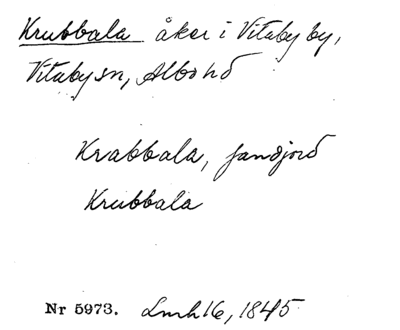 Krubbala åker i Vitaby by,
Vitaby sn, Albo hd
Krabbala, sandjord
Krubbala
Nr 5973. Lmh 16, 1845